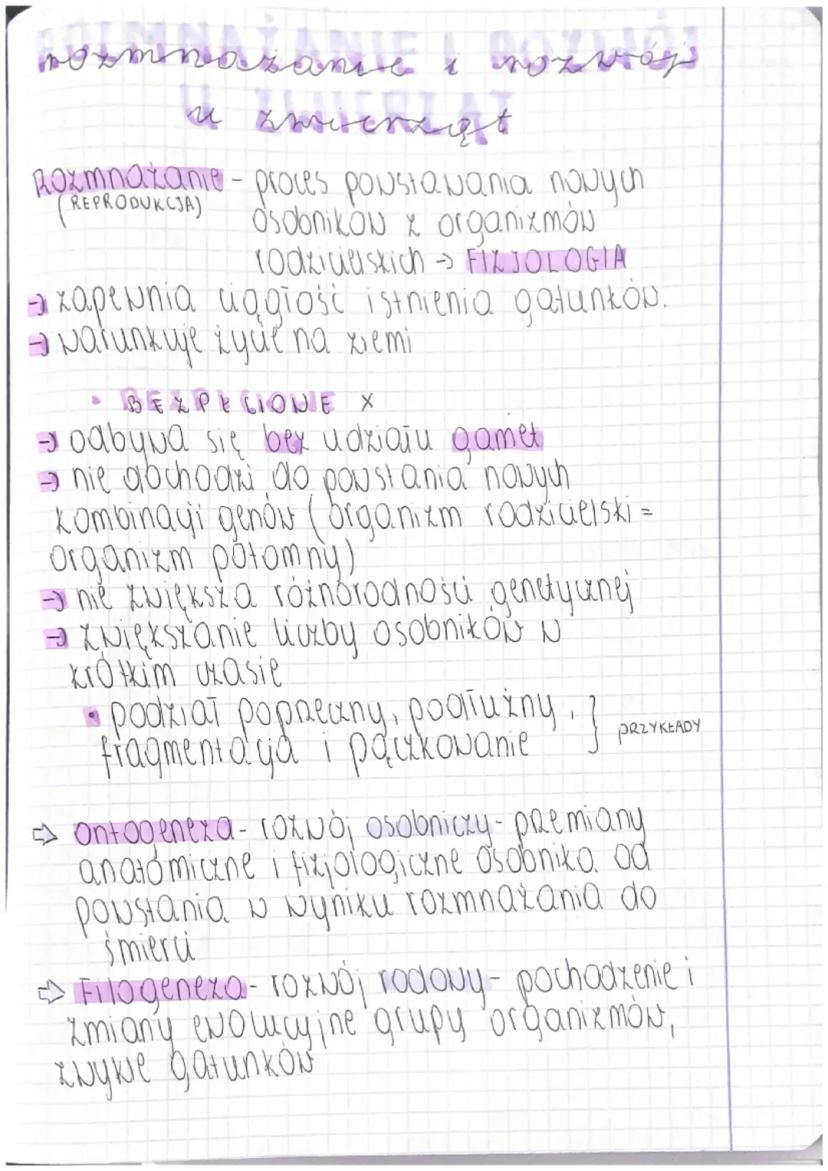 rozmnażanie i rozwój
u zwierząt
Rozmnażanie - proces powstawania nowych
(REPRODUKCJA)
osobników z organizmów
rodzicielskich → FIZJOLOGIA
→ zapewnia ciągłość istnienia gatunków.
→ warunkuje życie na ziemi
• BEZPŁCIOWE X
→ odbywa się bez udziału gamet
→ nie dochodzi do powstania nowych
kombinacji genów (organizm rodzicielski =
organizm potomny)
→ nie zwiększa różnorodności genetycznej
→ zwiększanie liczby osobników w
krótkim czasie
• podział poprzeczny, podłużny,
fragmentacja i pączkowanie } PRZYKŁADY
⇨ Ontogeneza - rozwój osobniczy - przemiany
anatomiczne i fizjologiczne osobnika od
powstania w wyniku rozmnażania do
śmierci
⇨ Filogeneza - rozwój rodowy - pochodzenie i
zmiany ewolucyjne grupy organizmów,
zwykle gatunków